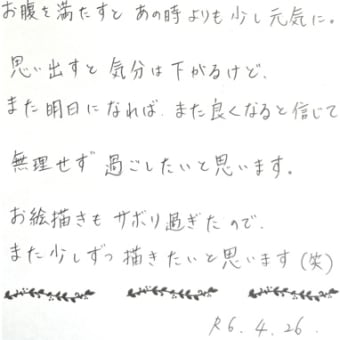 お腹を満たすと あの時よりも少し元気に。
思い出すと 気分は下がるけど、
また明日になれば、また良くなると信じて
無理せず 過ごしたいと思います。
お絵描きも サボり過ぎたので、
また少しずつ 描きたいと思います(笑)
R6.4.26.